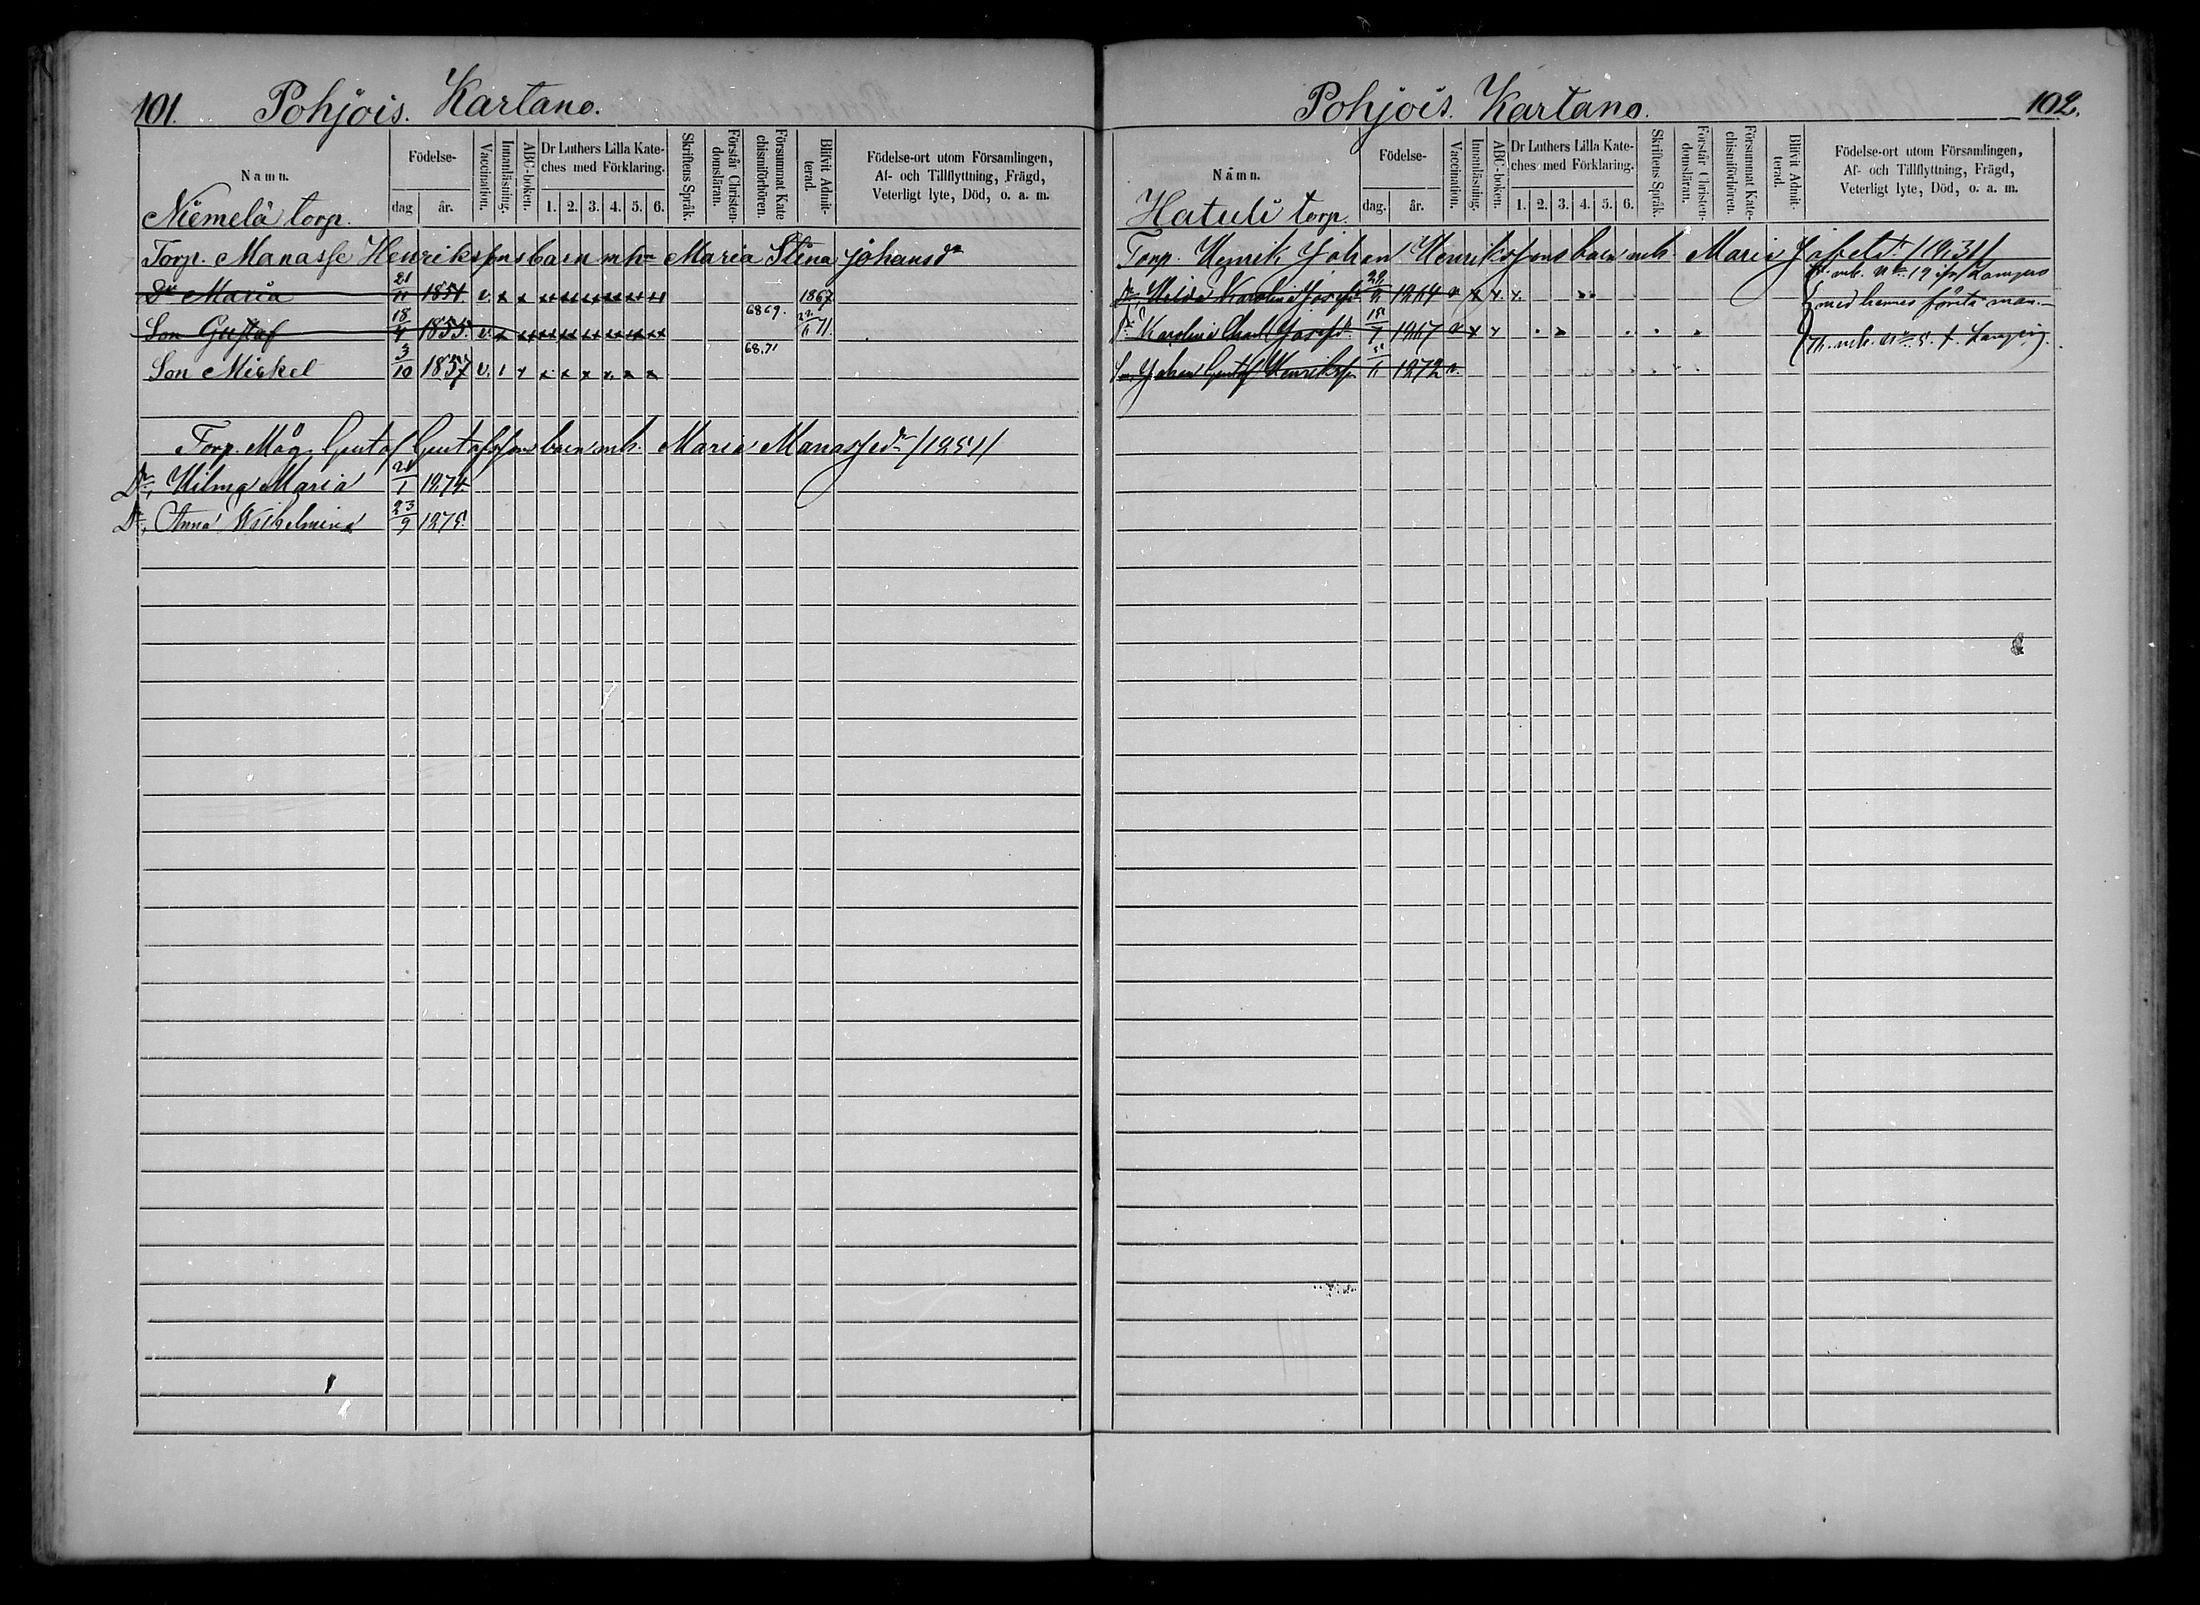 101. Pohjois. Kartano.
Namn.
Födelse-
dag
år.
Vaccination.
Innanläsning.
ABC-boken.
Dr Luthers Lilla Kate-
ches med Förklaring.
1. 2. 3. 4. 5. 6.
Skriftens Språk.
Förstår Christen-
domsläran.
Försummat Kate
chismiförhören.
Blifvit Admit-
terad.
Födelse-ort utom Församlingen,
Af- och Tillflyttning, Frägd,
Veterligt lyte, Död, o. a. m.
Niemelä torp.
Torp. Manasse Henrikssons barn mhu Maria Stina Johansdr
Dr Maria 21/11 1851. v. x x 1867.
Son Gustaf 18/4 1855. v. x x 6869. 22/6 71.
Son Mickel 3/10 1857 v. 1 x x x x x x x 68.71
Torp. Måg Gustaf Gustafssons barn mh. Maria Manassedr /1851/
Dr, Hilma Maria 21/1 1874.
Dr, Anna Wilhelmina 23/9 1875.
Pohjois. Kartano. 102.
Namn.
Födelse-
dag.
år.
Vaccination.
Innanläsning.
ABC-boken.
Dr Luthers Lilla Kate-
ches med Förklaring.
1. 2. 3. 4. 5. 6.
Skriftens Språk.
Förstår Christen-
domsläran.
Försummat Kate-
chismiförhören.
Blifvit Admit-
terad.
Födelse-ort utom Församlingen,
Af- och Tillflyttning, Frägd,
Veterligt lyte, Död, o. a. m.
Hatuli torp.
Torp. Henrik Johan Henrikssons barn mh. Maria /1831/
Dr. Hilda Karolina Josefsdr 1864 v x x x
med hennes första man.
Dr. Karolina Josefsdr. 1867 v x x
Son, Johan Gustaf Henrikss. 1872 v.